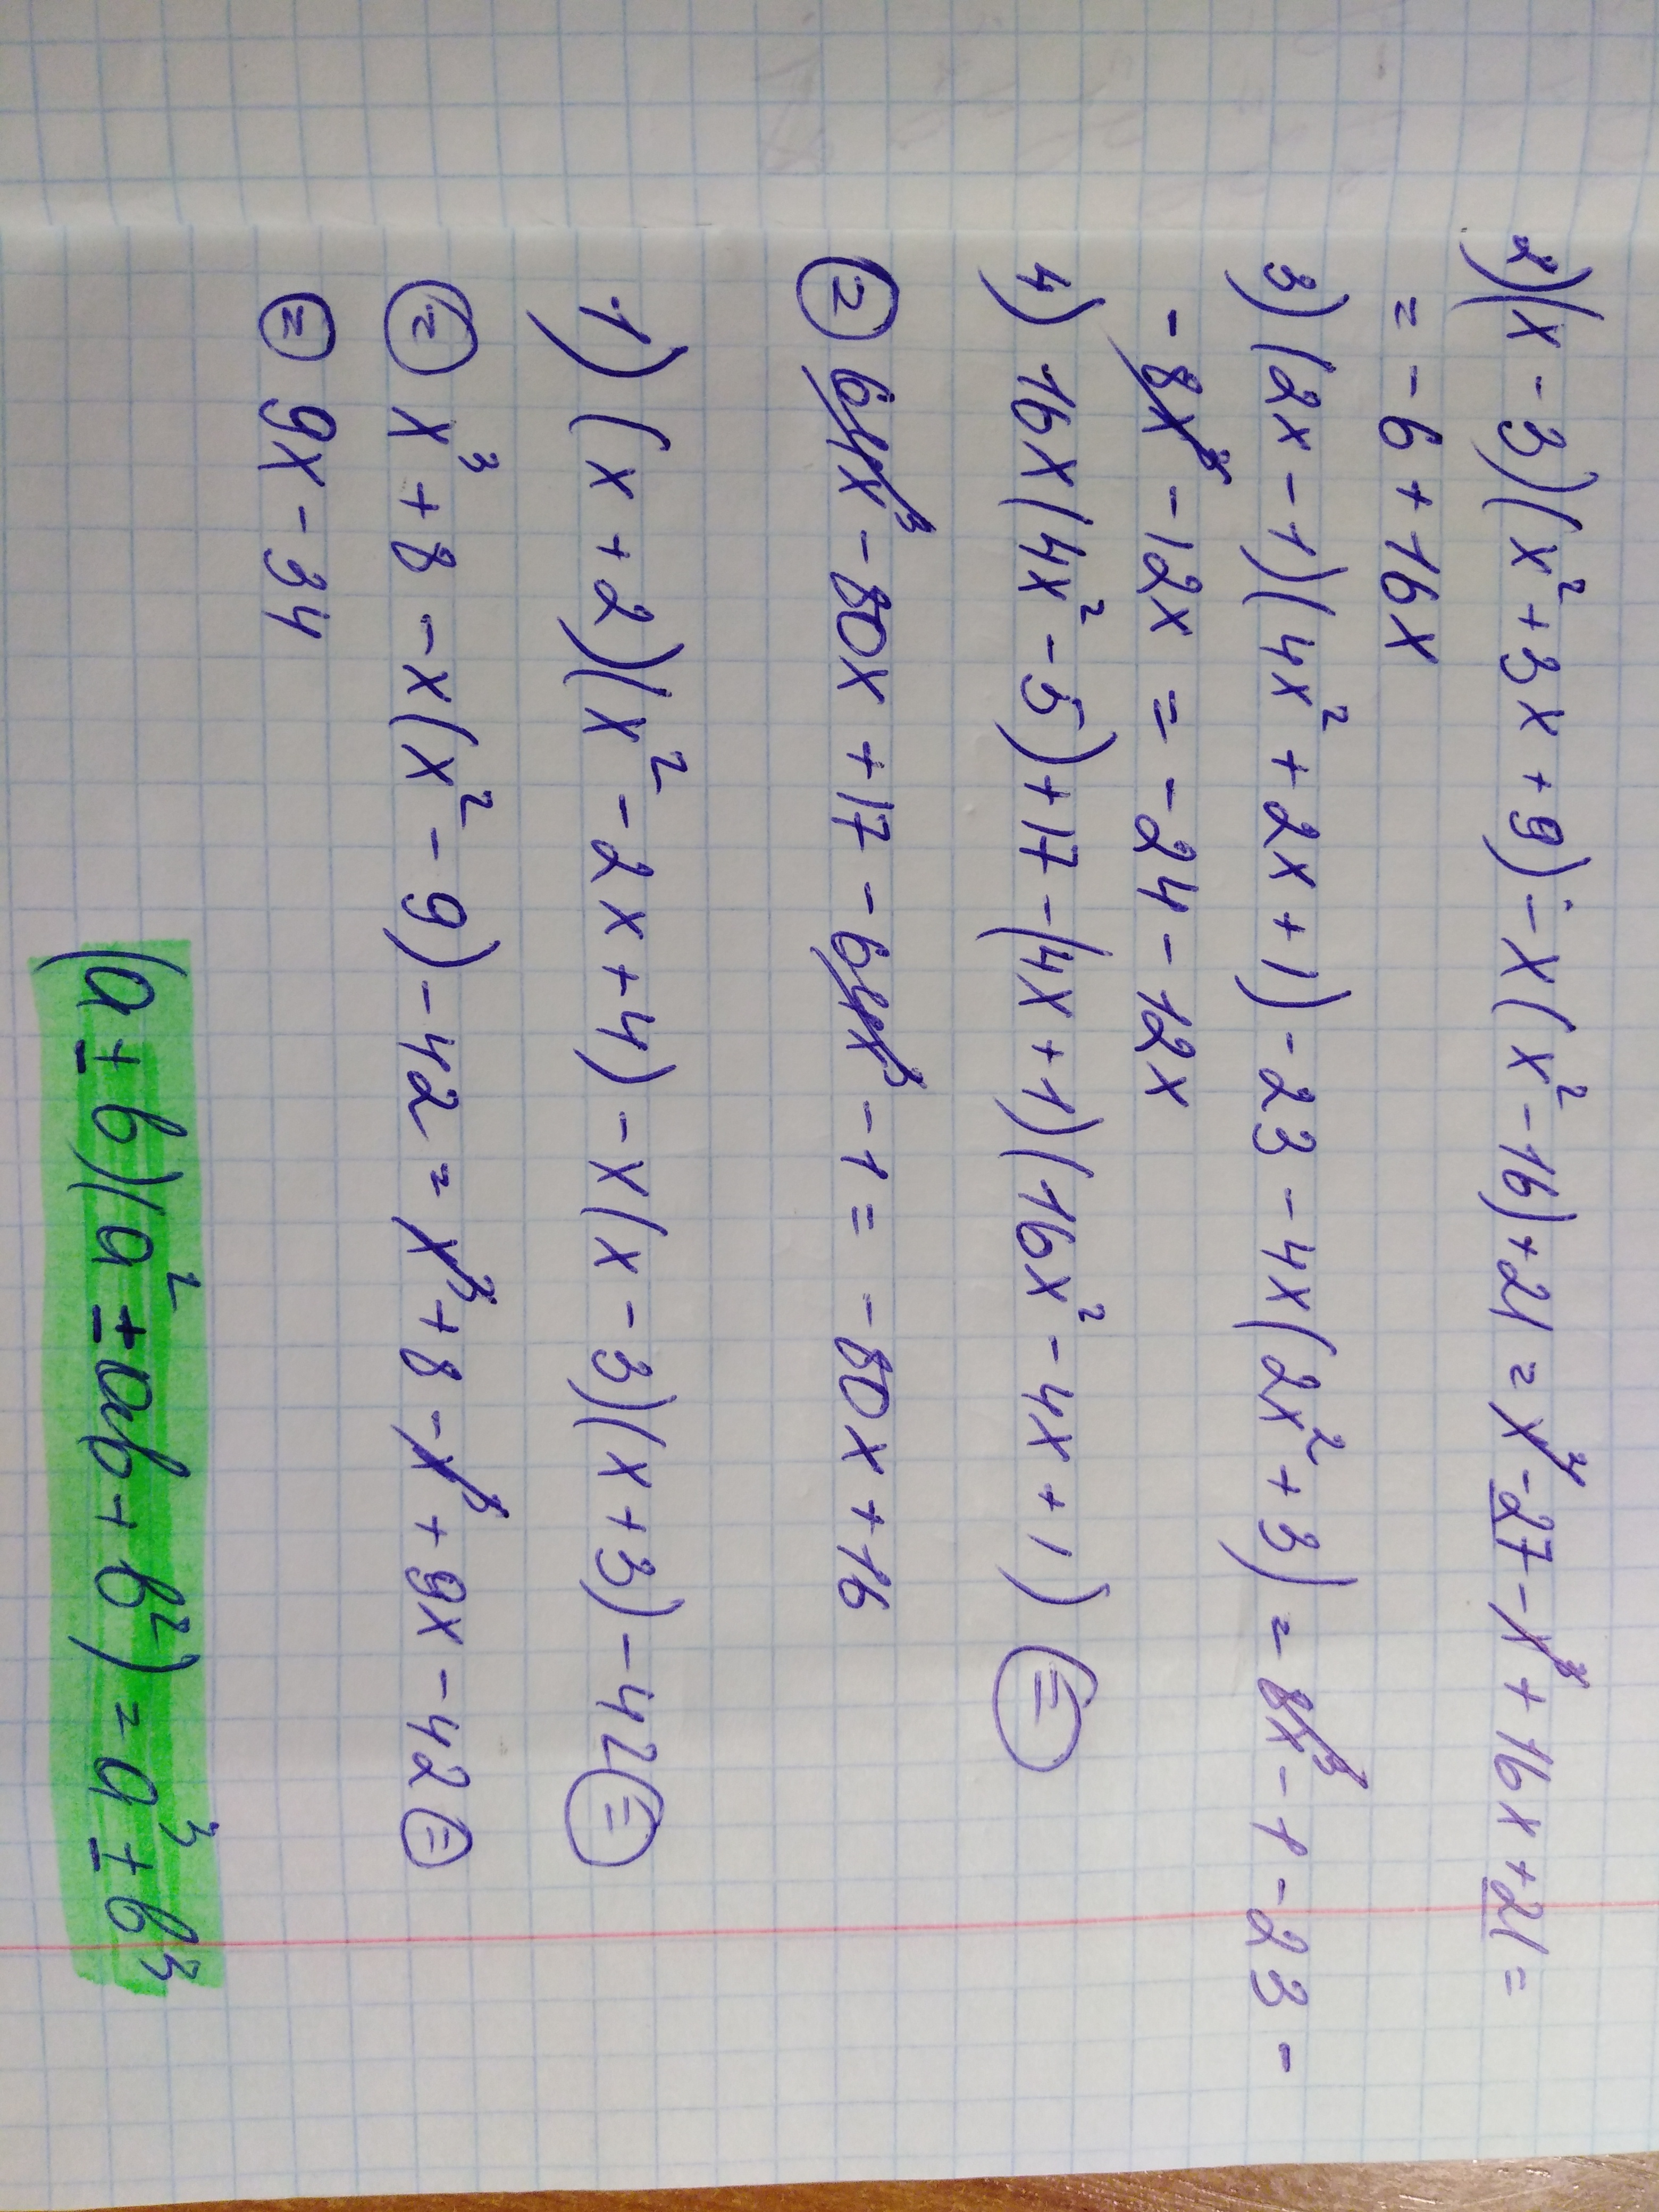 2) (x - 3)(x² + 3x + 9) - x(x² - 16) + 21 = x³ - 27 - x³ + 16x + 21 =
= - 6 + 16x
3) (2x - 1)(4x² + 2x + 1) - 23 - 4x(2x² + 3) = 8x³ - 1 - 23 -
- 8x³ - 12x = - 24 - 12x
4) 16x(4x² - 5) + 17 - (4x + 1)(16x² - 4x + 1) =
= 64x³ - 80x + 17 - 64x³ - 1 = - 80x + 16
1) (x + 2)(x² - 2x + 4) - x(x - 3)(x + 3) - 42 =
= x³ + 8 - x(x² - 9) - 42 = x³ + 8 - x³ + 9x - 42 =
= 9x - 34
(a ± b)(a² ± ab + b²) = a³ ± b³